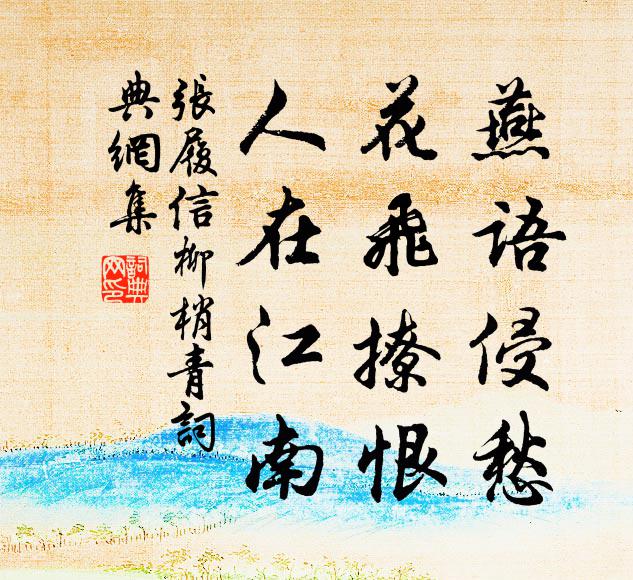 燕語侵愁
花飛撩恨
人在江南
張履信柳梢青詞
典網集
詞典
网印